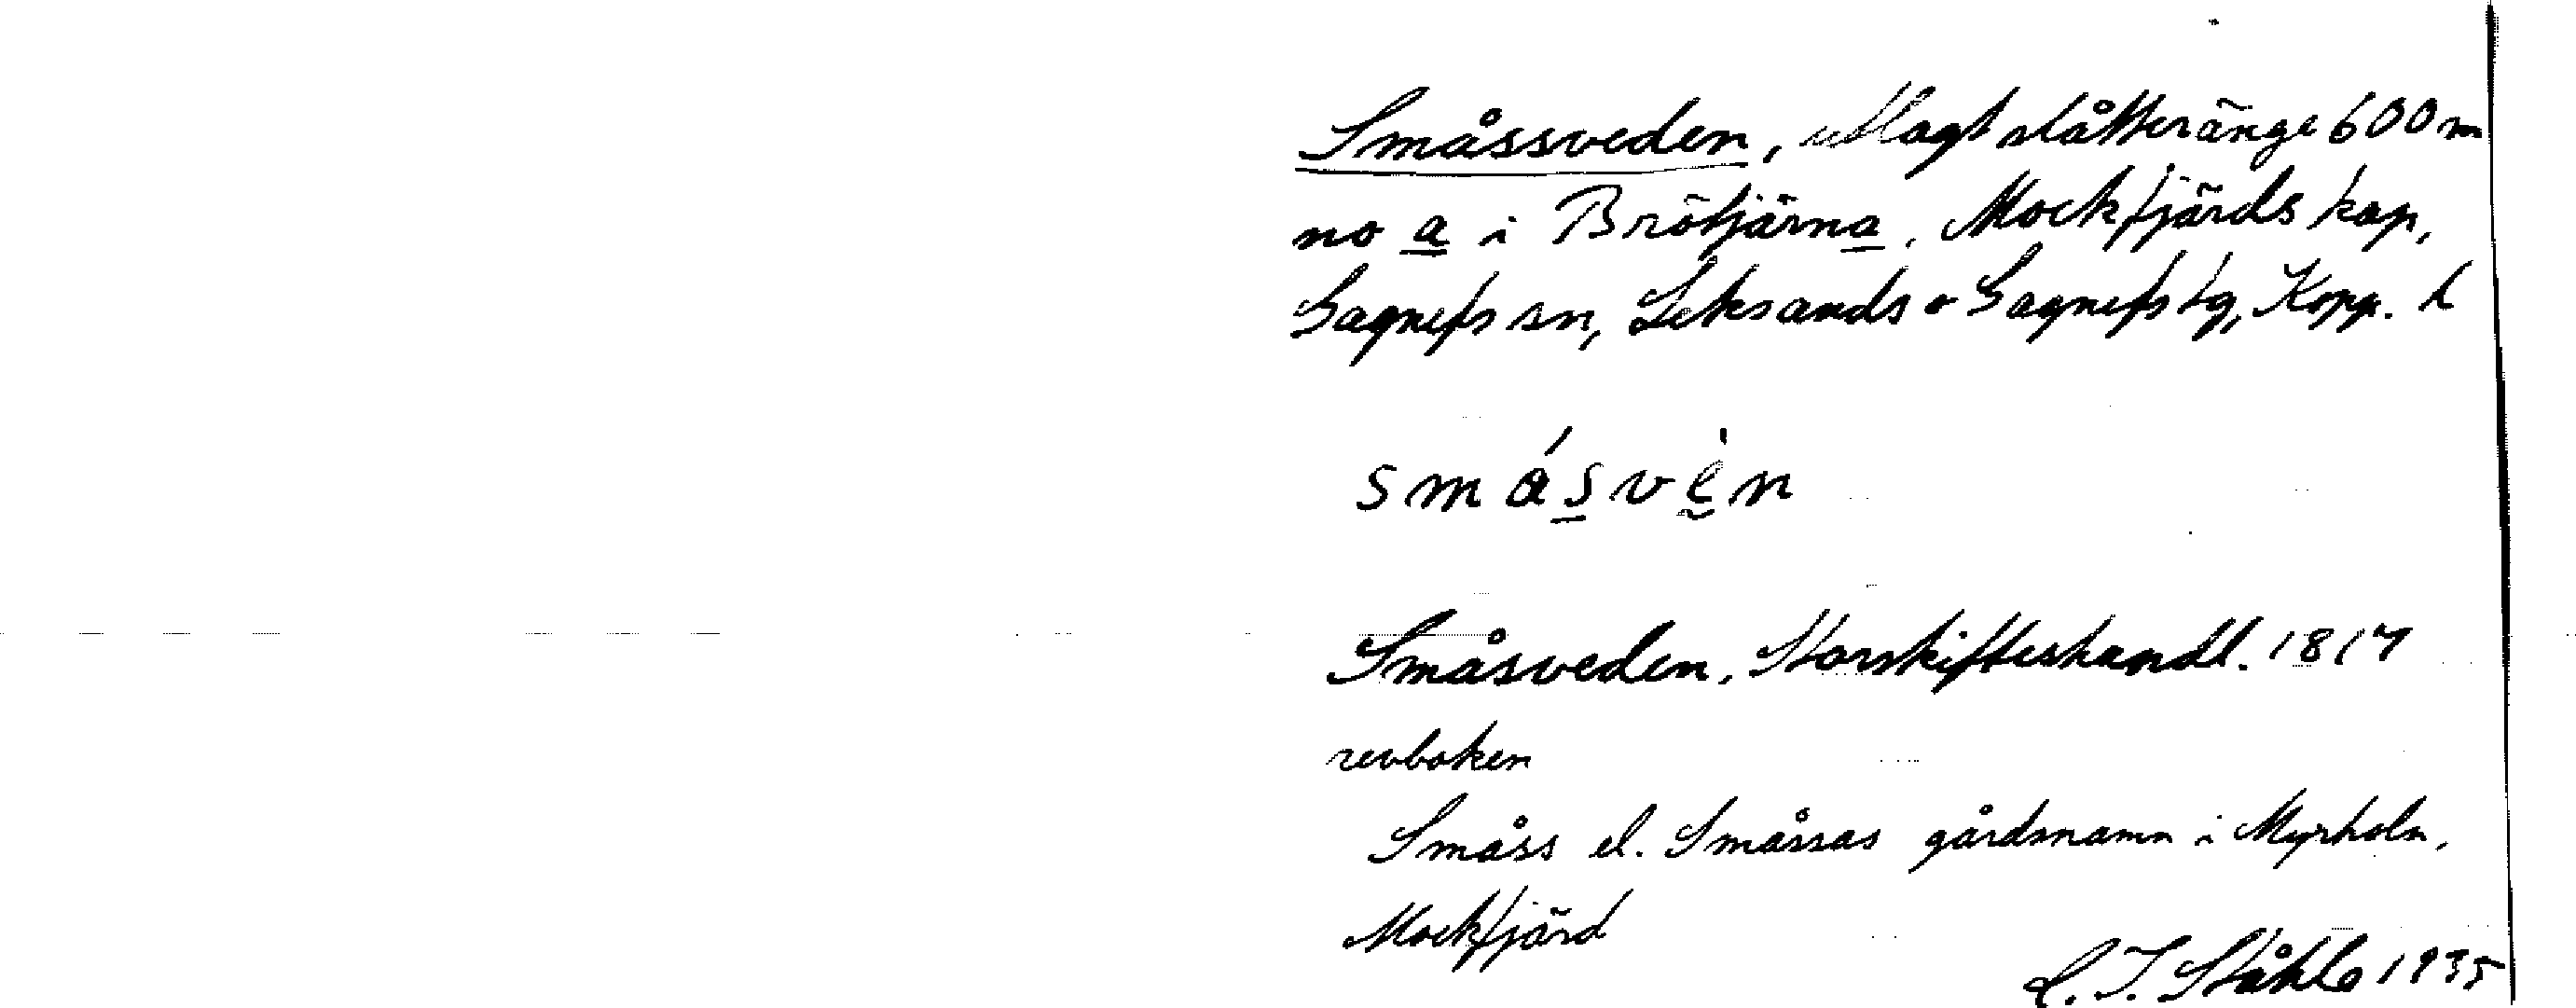 Småssveden, utlagt slåtteränge 600 m
no a i Brötjärna, Mockfjärds kap,
Gagnefs sn, Leksands o Gagnefs tg, Kopp. l
smásvèn
Småsveden, Storskifteshandl. 1817
revboken
Småss el. Småssas gårdsnamn i Myrholn,
Mockfjärd
C. I. Ståhle 1935